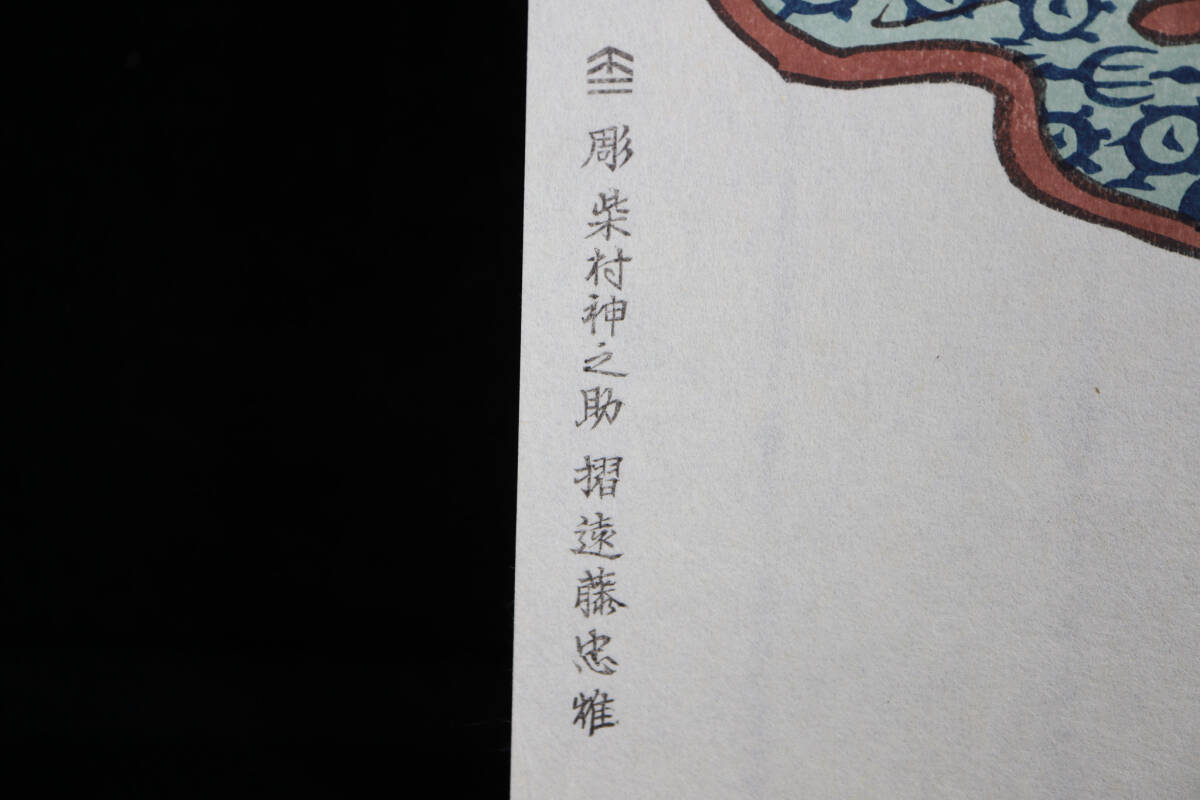 彫 柴村神之助 摺 遠藤忠雅